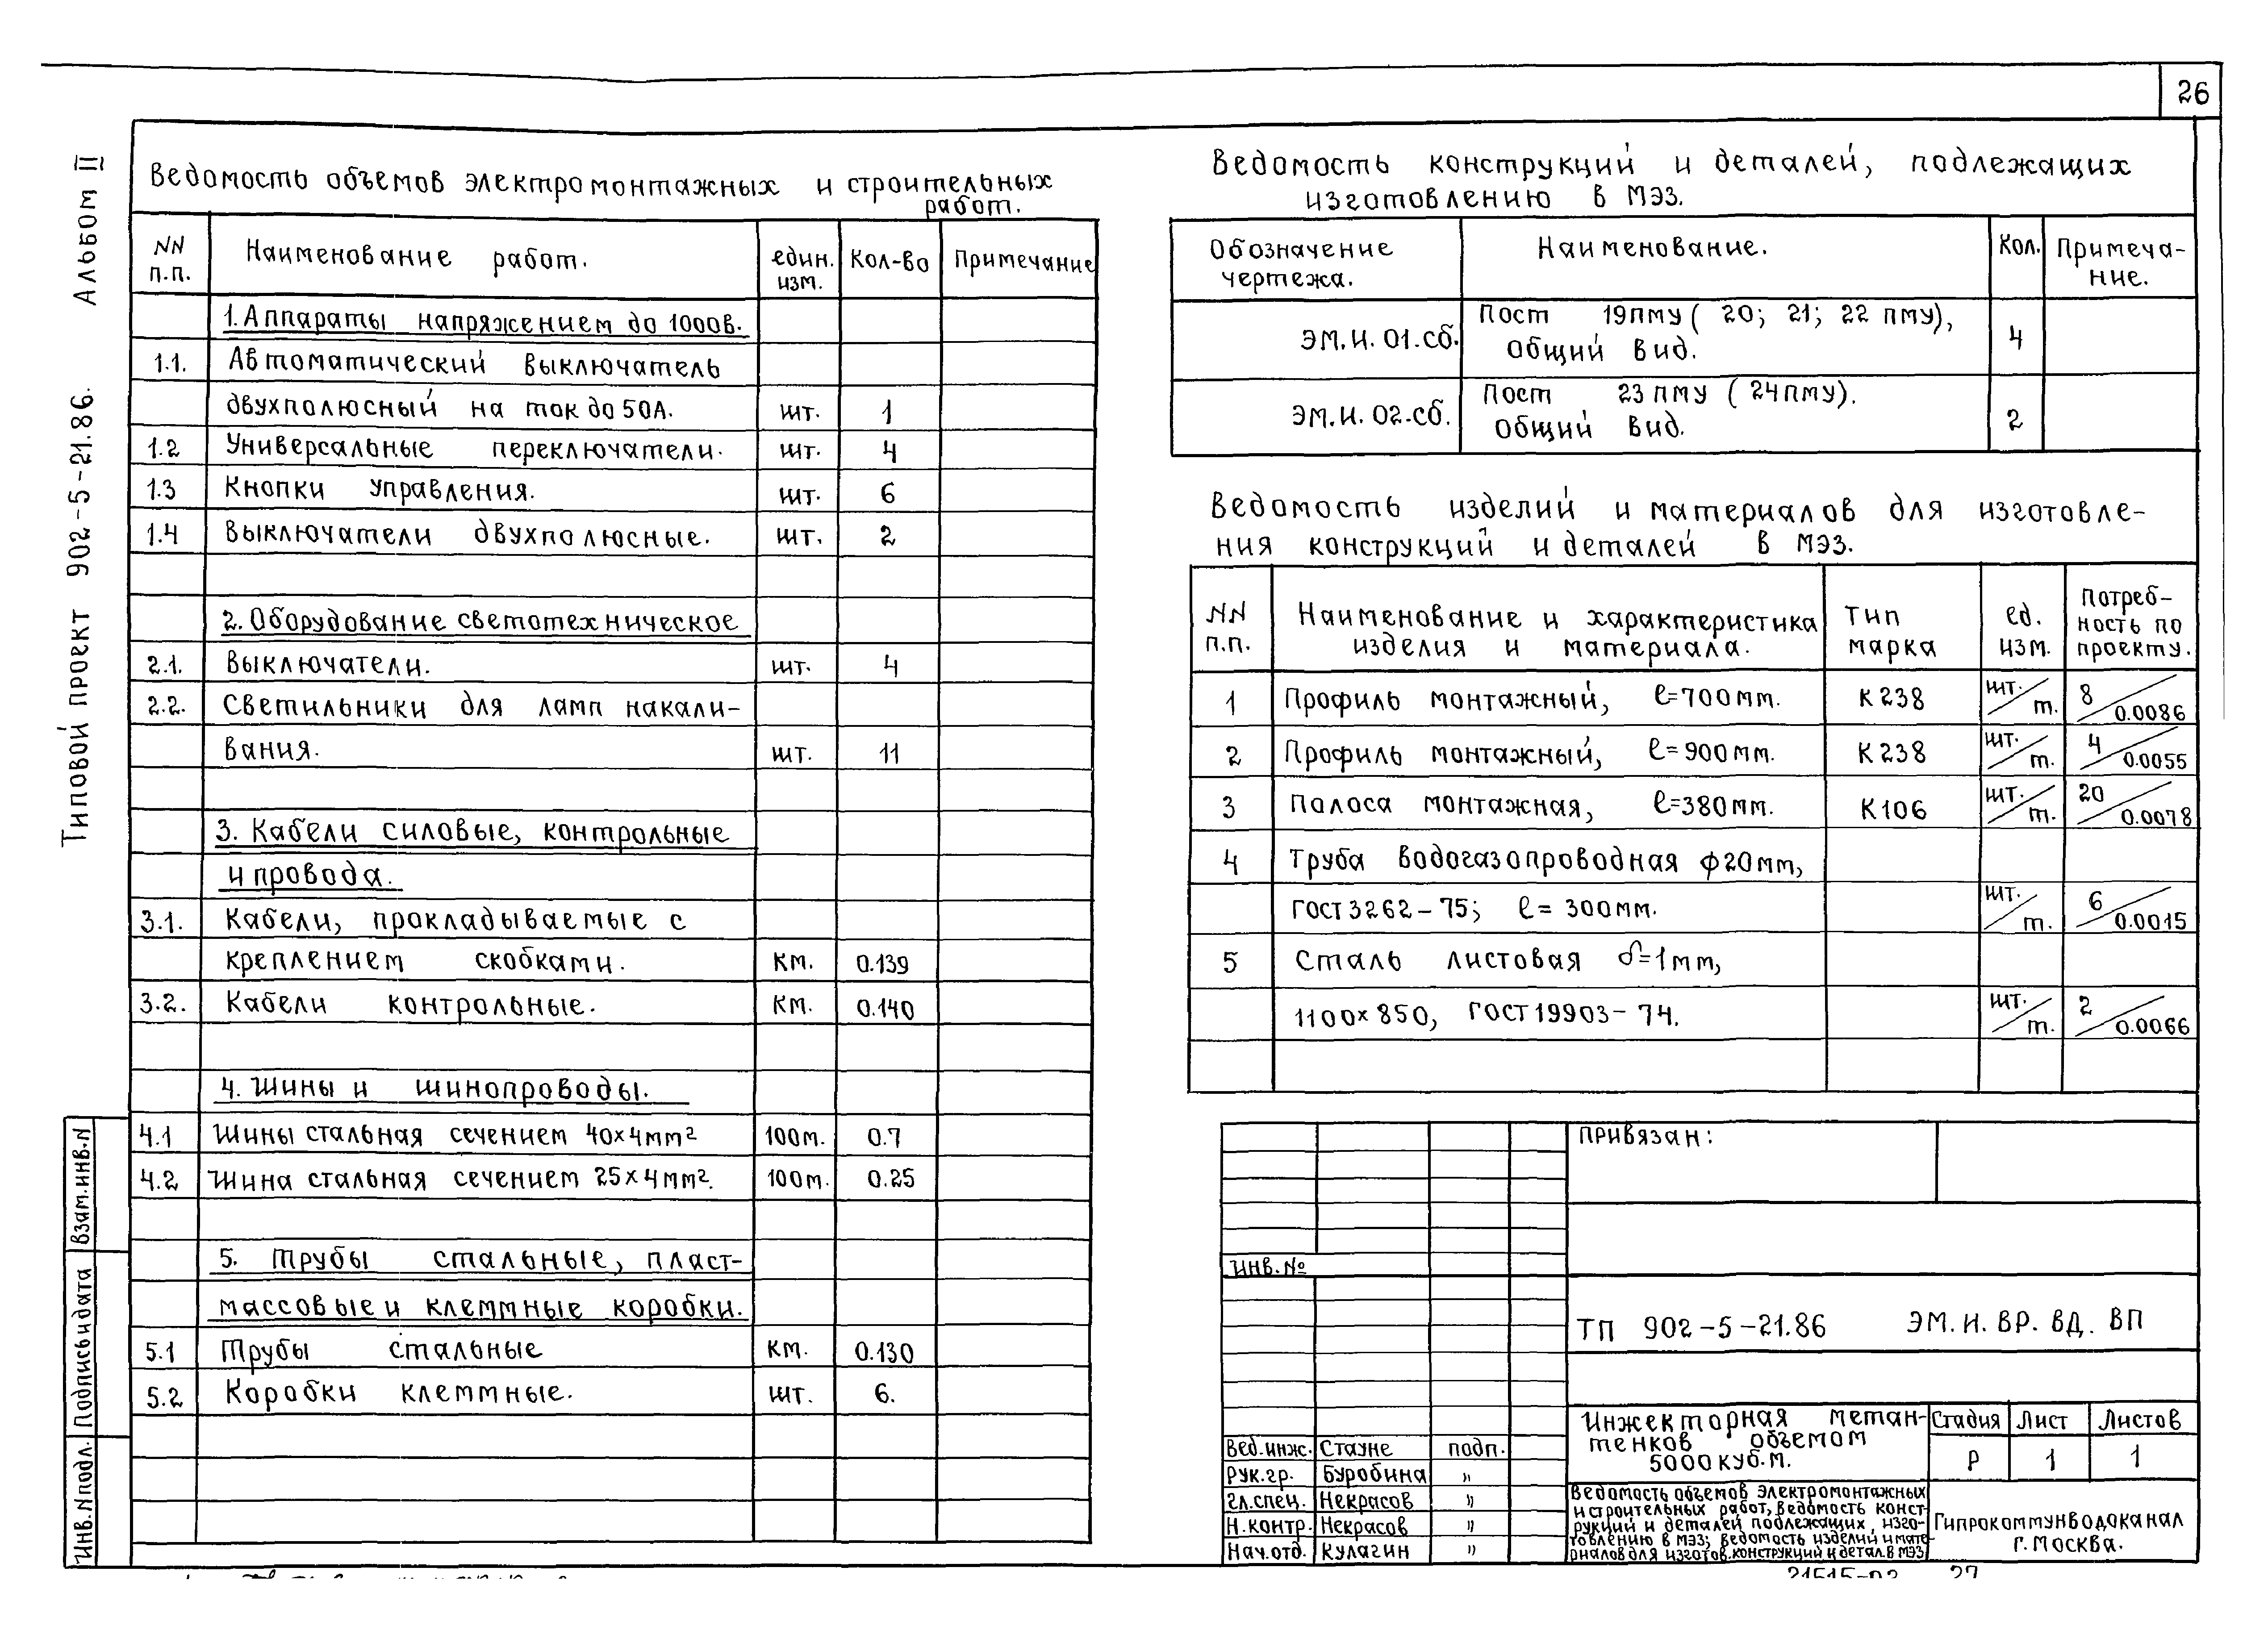 26
Альбом II
Типовой проект 902-5-21.86.
Ведомость объемов электромонтажных и строительных
работ.
NN
п.п.
Наименование работ.
един.
изм.
Кол-во
Примечание
1. Аппараты напряжением до 1000в.
1.1. Автоматический выключатель
двухполюсный на ток до 50А. шт. 1
1.2 Универсальные переключатели. шт. 4
1.3 Кнопки управления. шт. 6
1.4 Выключатели двухполюсные. шт. 2
2. Оборудование светотехническое
2.1. Выключатели. шт. 4
2.2. Светильники для ламп накали-
вания. шт. 11
3. Кабели силовые, контрольные
и провода.
3.1. Кабели, прокладываемые с
креплением скобками. км. 0.139
3.2. Кабели контрольные. км. 0.140
4. Шины и шинопроводы.
4.1 Шины стальная сечением 40х4мм² 100м. 0.7
4.2 Шина стальная сечением 25х4мм². 100м. 0.25
5. Трубы стальные, пласт-
массовые и клеммные коробки.
5.1 Трубы стальные км. 0.130
5.2 Коробки клеммные. шт. 6.
Ведомость конструкций и деталей, подлежащих
изготовлению в МЭЗ.
Обозначение
чертежа.
Наименование.
Кол.
Примеча-
ние.
ЭМ.И.01-сб. Пост 19пму (20; 21; 22 пму), 4
общий вид.
ЭМ.И.02-сб. Пост 23пму (24пму). 2
общий вид.
Ведомость изделий и материалов для изготовле-
ния конструкций и деталей в МЭЗ.
NN
п.п.
Наименование и характеристика
изделия и материала.
Тип
марка
ед.
изм.
Потреб-
ность по
проекту.
1 Профиль монтажный, ℓ=700мм. К238 шт./т. 8/0.0086
2 Профиль монтажный, ℓ=900мм. К238 шт./т. 4/0.0055
3 Полоса монтажная, ℓ=380мм. К106 шт./т. 20/0.0078
4 Труба водогазопроводная ф20мм,
ГОСТ 3262-75; ℓ=300мм. шт./т. 6/0.0015
5 Сталь листовая δ=1мм,
1100х850, ГОСТ 19903-74. шт./т. 2/0.0066
Привязан:
Инв.№
ТП 902-5-21.86 ЭМ.И.ВР.ВД.ВП
Инжекторная метан-
тенков объемом
5000 куб.м.
Стадия Лист Листов
Р 1 1
Вед.инж. Стауне подп.
Рук.гр. Буробина "
Гл.спец. Некрасов "
Н.контр. Некрасов "
Нач.отд. Кулагин "
Ведомость объемов электромонтажных
и строительных работ, ведомость конст-
рукций и деталей подлежащих, изго-
товлению в МЭЗ; ведомость изделий и мате-
риалов для изготов. конструкций и детал. в МЭЗ
Гипрокоммунводоканал
г. Москва.
Взам.инв.N
Подпись и дата
Инв.Nподл.
27